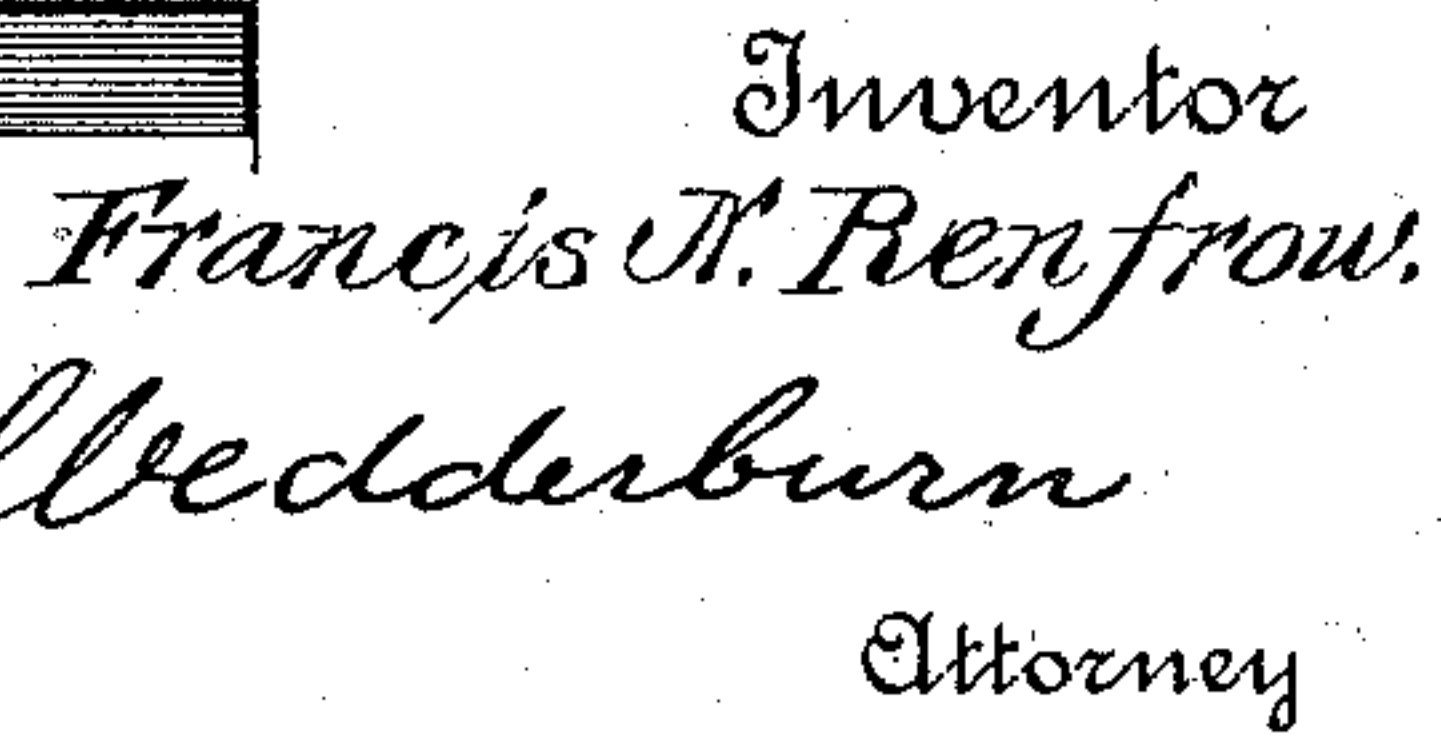 Inventor
Francis N. Renfrow.
Wedderburn
Attorney